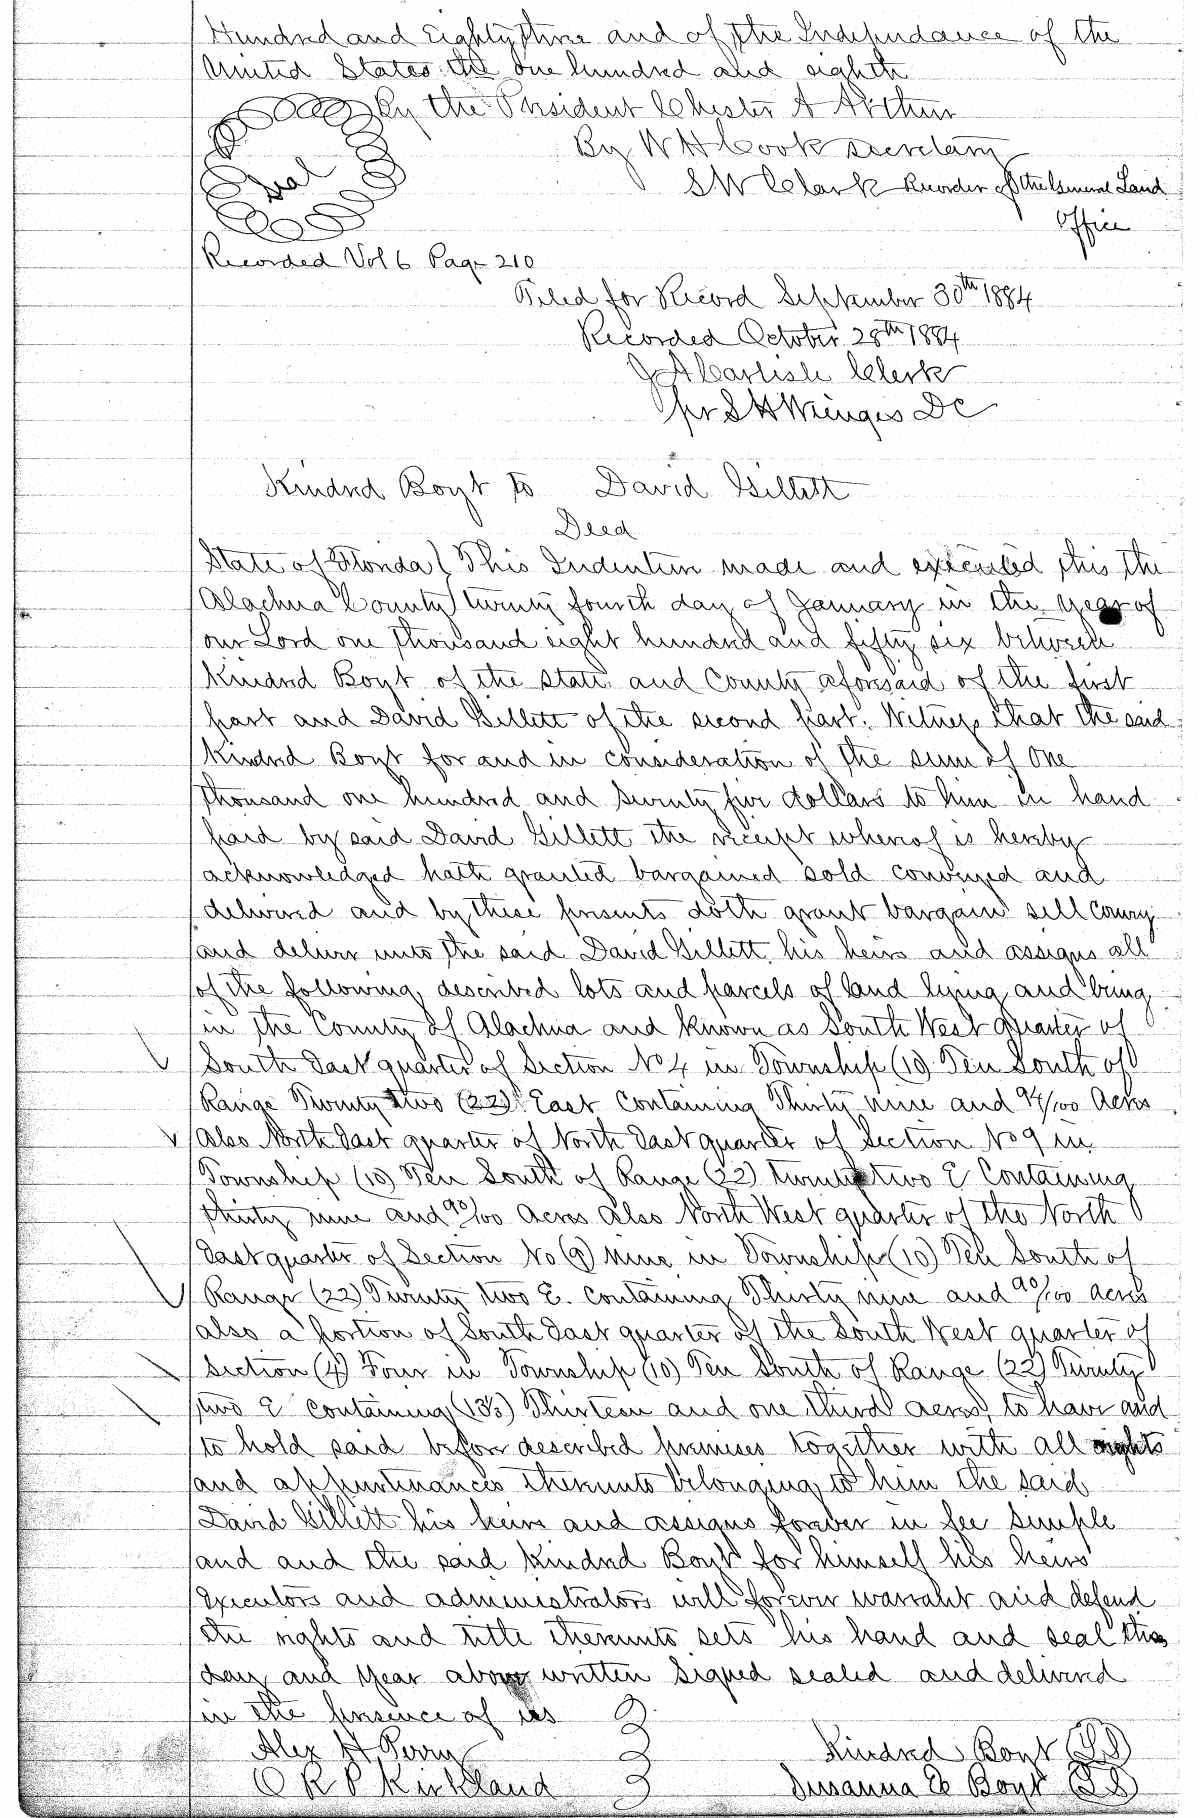 Hundred and Eighty three and of the Independance of the
United States the one hundred and eighth
By the President Chester A Arthur
By W H Cook secretary
Seal
S W Clark Recorder of the General Land
Office
Recorded Vol 6 Page 210
Filed for Record September 30th 1884
Recorded October 28th 1884
J A Carlisle Clerk
pr S H Wienges DC
Kindrd Boyt to David Gillett
Deed
State of Florida } This Indenture made and executed this the
Alachua County } twenty fourth day of January in the year of
our Lord one thousand eight hundred and fifty six between
Kindrd Boyt of the state and County aforesaid of the first
part and David Gillett of the second part. Witness that the said
Kindrd Boyt for and in consideration of the sum of One
thousand one hundred and twenty five dollars to him in hand
paid by said David Gillett the receipt whereof is hereby
acknowledged hath granted bargained sold conveyed and
delivered and by these presents doth grant bargain sell convey
and deliver unto the said David Gillett his heirs and assigns all
of the following described lots and parcels of land lying and being
in the County of Alachua and known as South West quarter of
South East quarter of Section No 4 in Township (10) Ten South of
Range Twenty two (22) East Containing Thirty nine and 94/100 Acres
Also North East quarter of North East quarter of Section No 9 in
Township (10) Ten South of Range (22) twenty two E Containing
thirty nine and 90/100 Acres Also North West quarter of the North
East quarter of Section No (9) nine in Township (10) Ten South of
Range (22) Twenty two E. containing Thirty nine and 90/100 acres
also a portion of South East quarter of the South West quarter of
Section (4) Four in Township (10) Ten South of Range (22) Twenty
two E containing (13 1/3) Thirteen and one third acres, to have and
to hold said before described premises together with all rights
and appurtinances thereunto belonging to him the said
David Gillett his heirs and assigns forever in fee simple
and and the said Kindrd Boyt for himself his heirs
Executors and administrators will forever warrant and defend
the rights and title thereunto sets his hand and seal this
day and year above written Signed sealed and delivered
in the presence of us }
Alex H Perry } Kindrd Boyt (LS)
O R P Kirkland } Susanna E Boyt (LS)